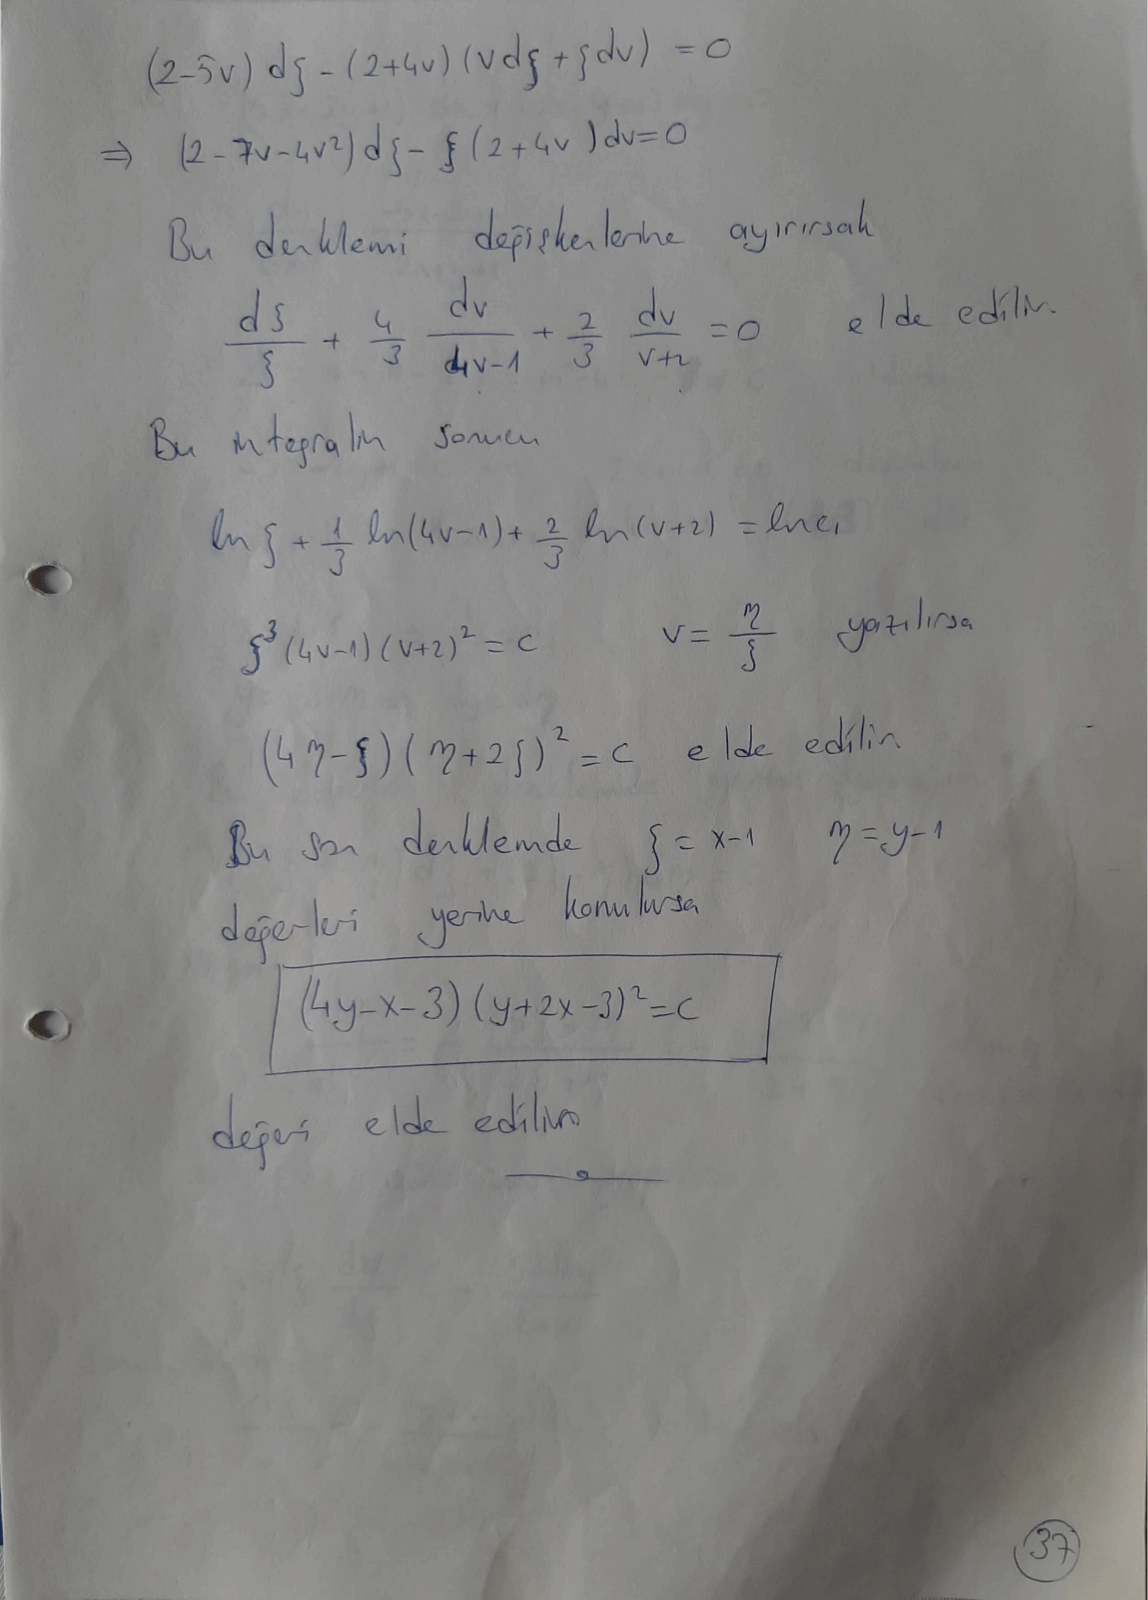 (2-5v) dξ - (2+4v) (vdξ + ξdv) = 0
⇒ (2-7v-4v²) dξ - ξ (2+4v) dv = 0
Bu denklemi değişkenlerine ayırırsak
dξ/ξ + 4/3 dv/(4v-1) + 2/3 dv/(v+2) = 0 elde edilir.
Bu integralin sonucu
ln ξ + 1/3 ln(4v-1) + 2/3 ln(v+2) = ln c₁
ξ³ (4v-1) (v+2)² = c v = η/ξ yazılırsa
(4η-ξ) (η+2ξ)² = c elde edilir
Bu son denklemde ξ = x-1 η = y-1
değerleri yerine konulursa
(4y-x-3) (y+2x-3)² = c
değeri elde edilir
37